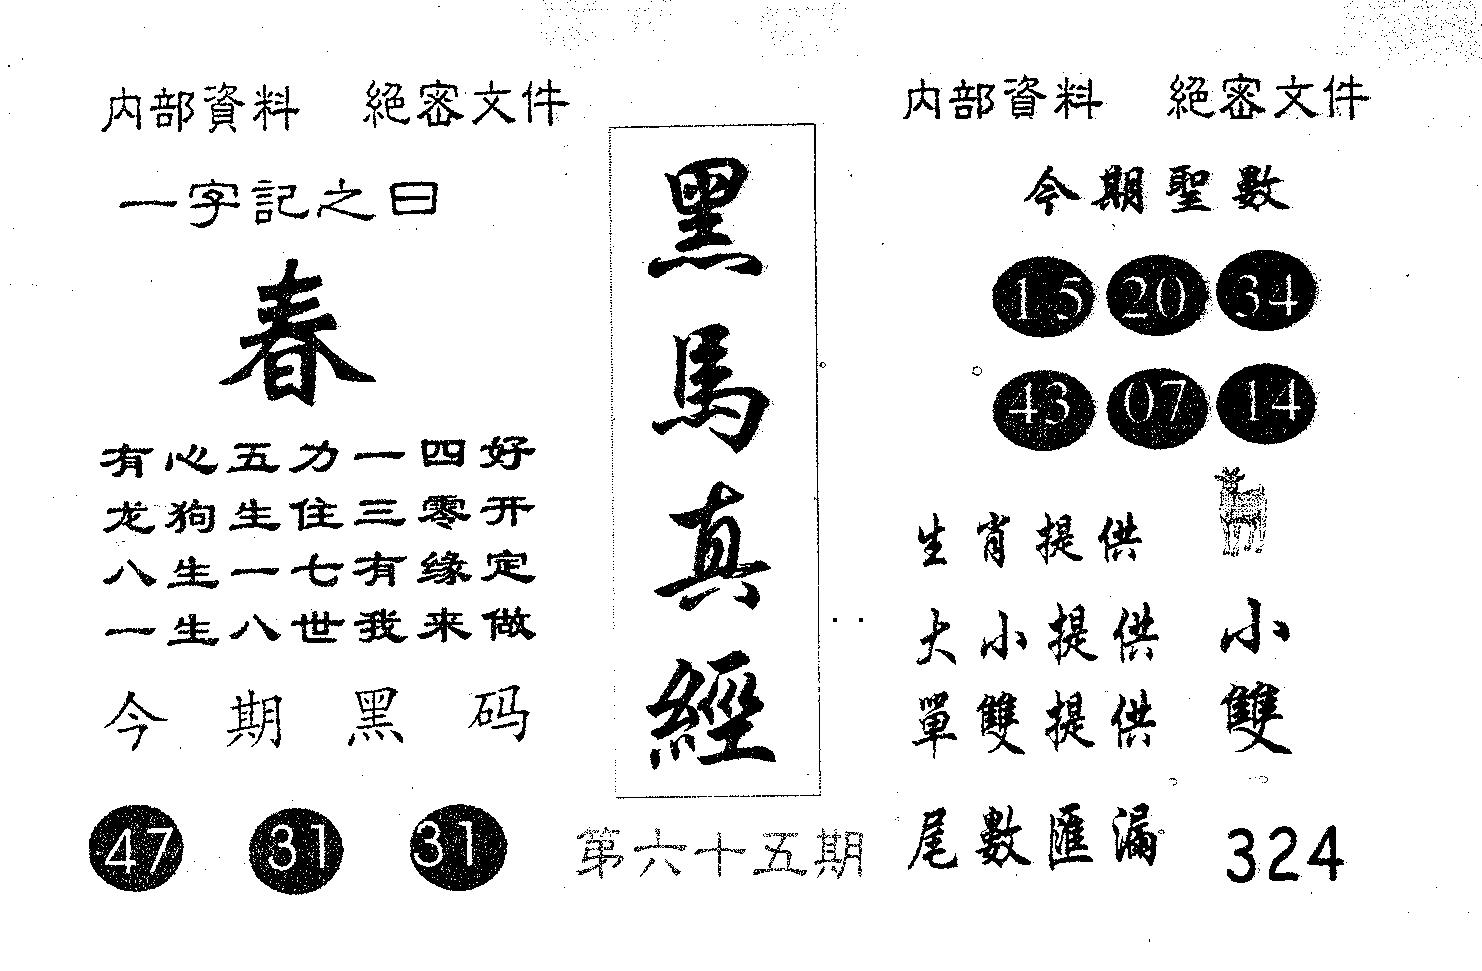 内部資料 絕密文件
一字記之曰
春
有心五力一四好
龙狗生住三零开
八生一七有缘定
一生八世我来做
今期黑码
47 31 31
黑馬真經
第六十五期
内部資料 絕密文件
今期聖數
15 20 34
43 07 14
生肖提供
大小提供 小
單雙提供 雙
尾數匯漏 324